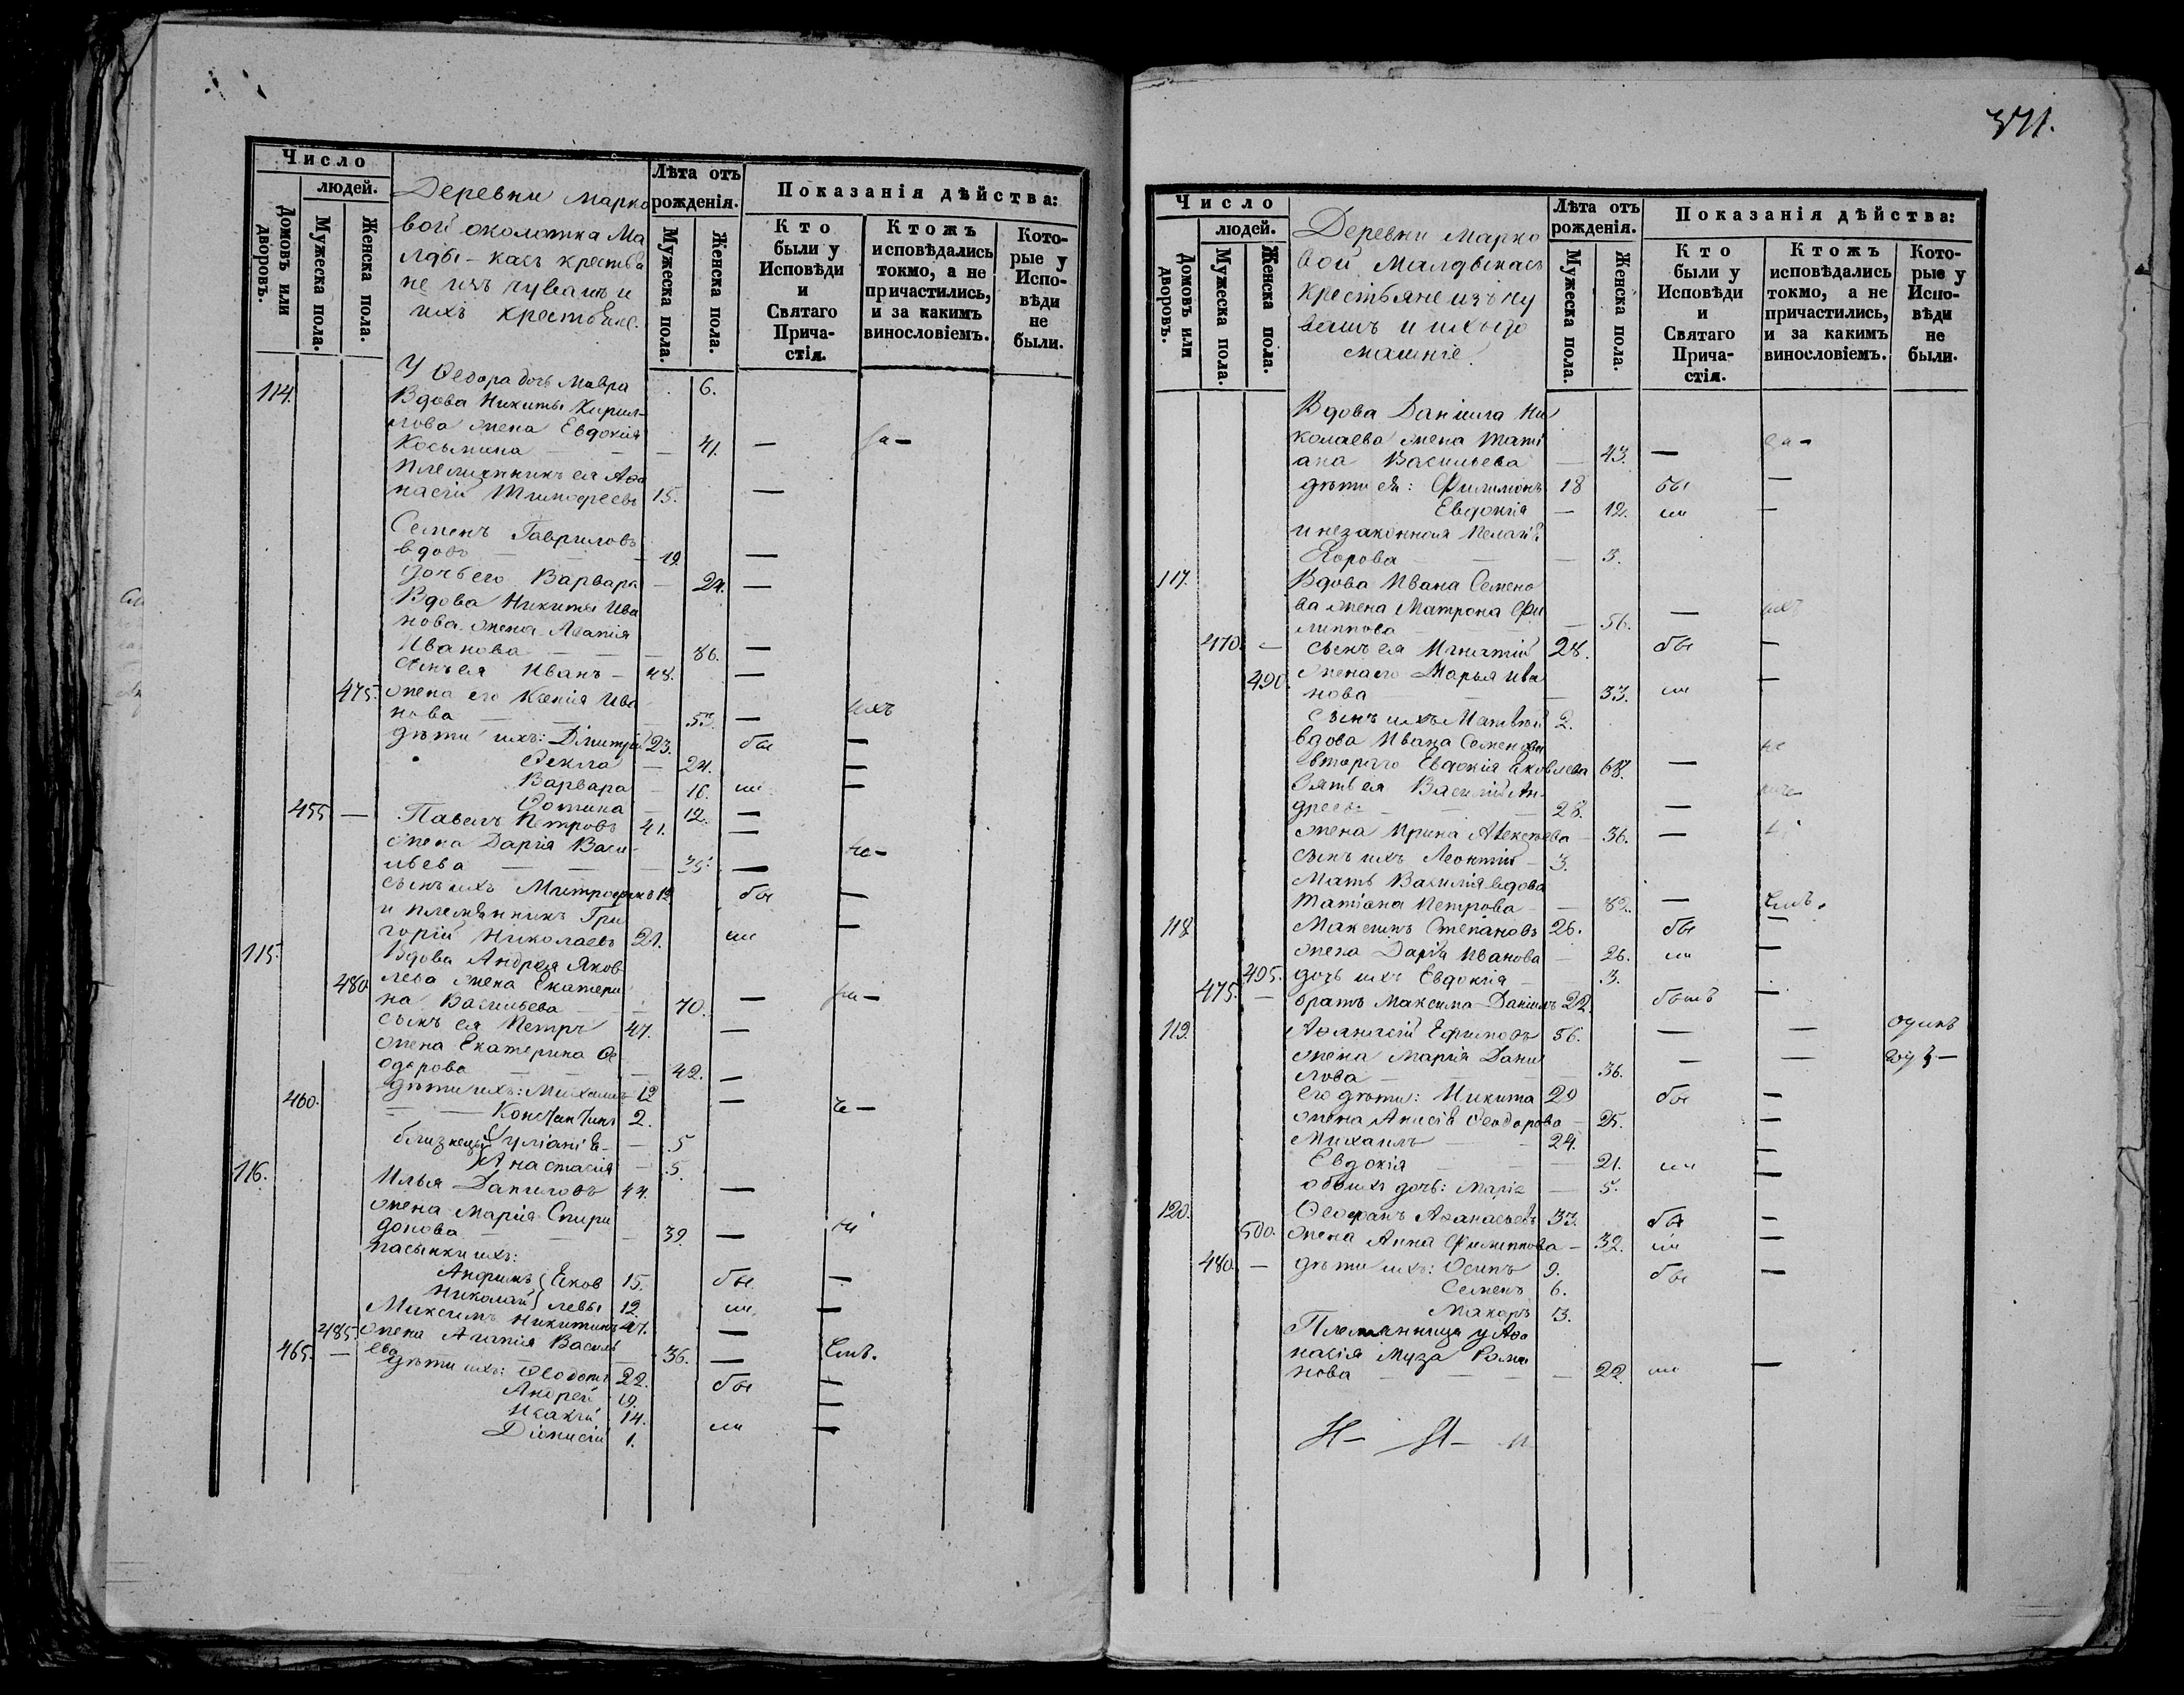 Число
людей.
Домовъ или дворовъ.
Мужеска пола.
Женска пола.
Деревни Марко
вой околотка Ма
лды-касъ крестья
не изъ чувашъ и
ихъ
Лѣта отъ
рожденія.
Мужеска пола.
Женска пола.
Показанія дѣйства:
Кто были у Исповѣди и Святаго Прича-стія.
Ктожъ исповѣдались токмо, а не причастились, и за какимъ винословіемъ.
Кото-рые у Испо-вѣди не были.
У Ѳедора дочь Мавра 6.
114. Вдова Никиты Кирил-
лова жена Евдокія
Косьмина — — 41. —
племянникъ ея Аѳа
насій Тимоѳеевъ 15. —
Семенъ Гавриловъ
вдовъ — — 49. —
дочь его Варвара — 24. —
Вдова Никиты Ива
нова жена Агапія
Иванова — — 86. —
сынъ ея Иванъ — 48. —
475. жена его Ксенія Ива
нова — — — ихъ
дѣти ихъ: Дмитрій 23. бы —
Ѳекла — 24. —
Варвара — 16. ли —
Ѳотина — 12. —
455 — Павелъ Петровъ 41. —
жена Дарія Васи-
льева — — 35. — не —
сынъ ихъ Митрофанъ 19 бы —
и племянникъ Гри
горій Николаевъ 21. ли —
115. Вдова Андрея Яков
480 лева жена Екатери
на Васильева — 70. —
сынъ ея Петръ 47. —
жена Екатерина Ѳе
одорова — 42. —
460. дѣти ихъ: Михаилъ 12 —
— — Константинъ 2.
близнецы Іуліанія — 5
Анастасія — 5.
116. Илья Даниловъ 44. —
жена Марія Спири
донова — — 39. —
пасынки ихъ:
Анфимъ } Яков 15. бы —
Николай } левы 12. ли —
Максимъ Никитинъ 47. —
485. жена Агапія Василь
465. — ева — 36. —
дѣти ихъ: Ѳеодотъ 22. бы —
Андрей 19. —
Исакій 14. ли —
Діонисій 1.
371.
Число
людей.
Домовъ или дворовъ.
Мужеска пола.
Женска пола.
Деревни Марко
вой Малдыкасъ
крестьяне изъ чу
вашъ и ихъ до
машніе
Лѣта отъ
рожденія.
Мужеска пола.
Женска пола.
Показанія дѣйства:
Кто были у Исповѣди и Святаго Прича-стія.
Ктожъ исповѣдались токмо, а не причастились, и за какимъ винословіемъ.
Кото-рые у Испо-вѣди не были.
Вдова Даніила Ни
колаева жена Тати
ана Васильева — 43. —
дѣти ея: Филимонъ 18 бы —
Евдокія — 12. ли —
и незаконная Пелагія
Егорова — — 3.
117. Вдова Ивана Семено
ва жена Матрона Фи
липпова — 56. — ихъ
470. — сынъ ея Игнатій 28. бы —
490. жена его Марья Ива
нова — — 33. ли —
сынъ ихъ Матвѣй 2.
вдова Ивана Семенова
втораго Евдокія Яковлева 68. — не
зять ея Василій Ан-
дреевъ — 28. —
жена Ирина Алексѣева — 36. —
сынъ ихъ Леонтій — 3.
Мать Василія вдова
Татіана Петрова — — 82. —
118. Максимъ Степановъ 26. бы —
жена Дарія Иванова — 26. ли —
495. дочь ихъ Евдокія — 3.
475. — братъ Максима Даніилъ 22. былъ —
119. Аѳанасій Ефимовъ 56. — — одинъ
жена Марія Дани — — годъ —
лова — — 36.
его дѣти: Никита 29 бы —
жена Анисія Ѳеодорова — 25. —
Михаилъ — — 24. —
Евдокія — — 21. ли —
обоихъ дочь: Марія — 5.
120. Ѳеофанъ Аѳанасьевъ 33. бы —
500. жена Анна Филиппова — 32. ли —
480. — дѣти ихъ: Осипъ 9. бы —
Семенъ 6.
Макаръ 3.
Племянница у Аѳа
насія Муза Рома
нова — — — 22. ли —